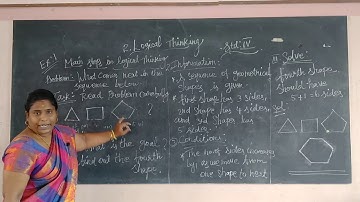 2. Logical Thinking
Std: IV
EX: Main steps in Logical Thinking
Problem: What comes next in the
sequence below
Task: Read Problem carefully
?
What is the goal
find out the fourth
shape.
Information:
A sequence of geometrical
shapes is given.
First shape has 3 sides,
2nd shape has 4 sides
and 3rd shape has
5 sides.
Conditions:
The no. of sides increases
by as we move from
one shape to next
Solve:
fourth shape
should have
5+1=6 sides
Sol: